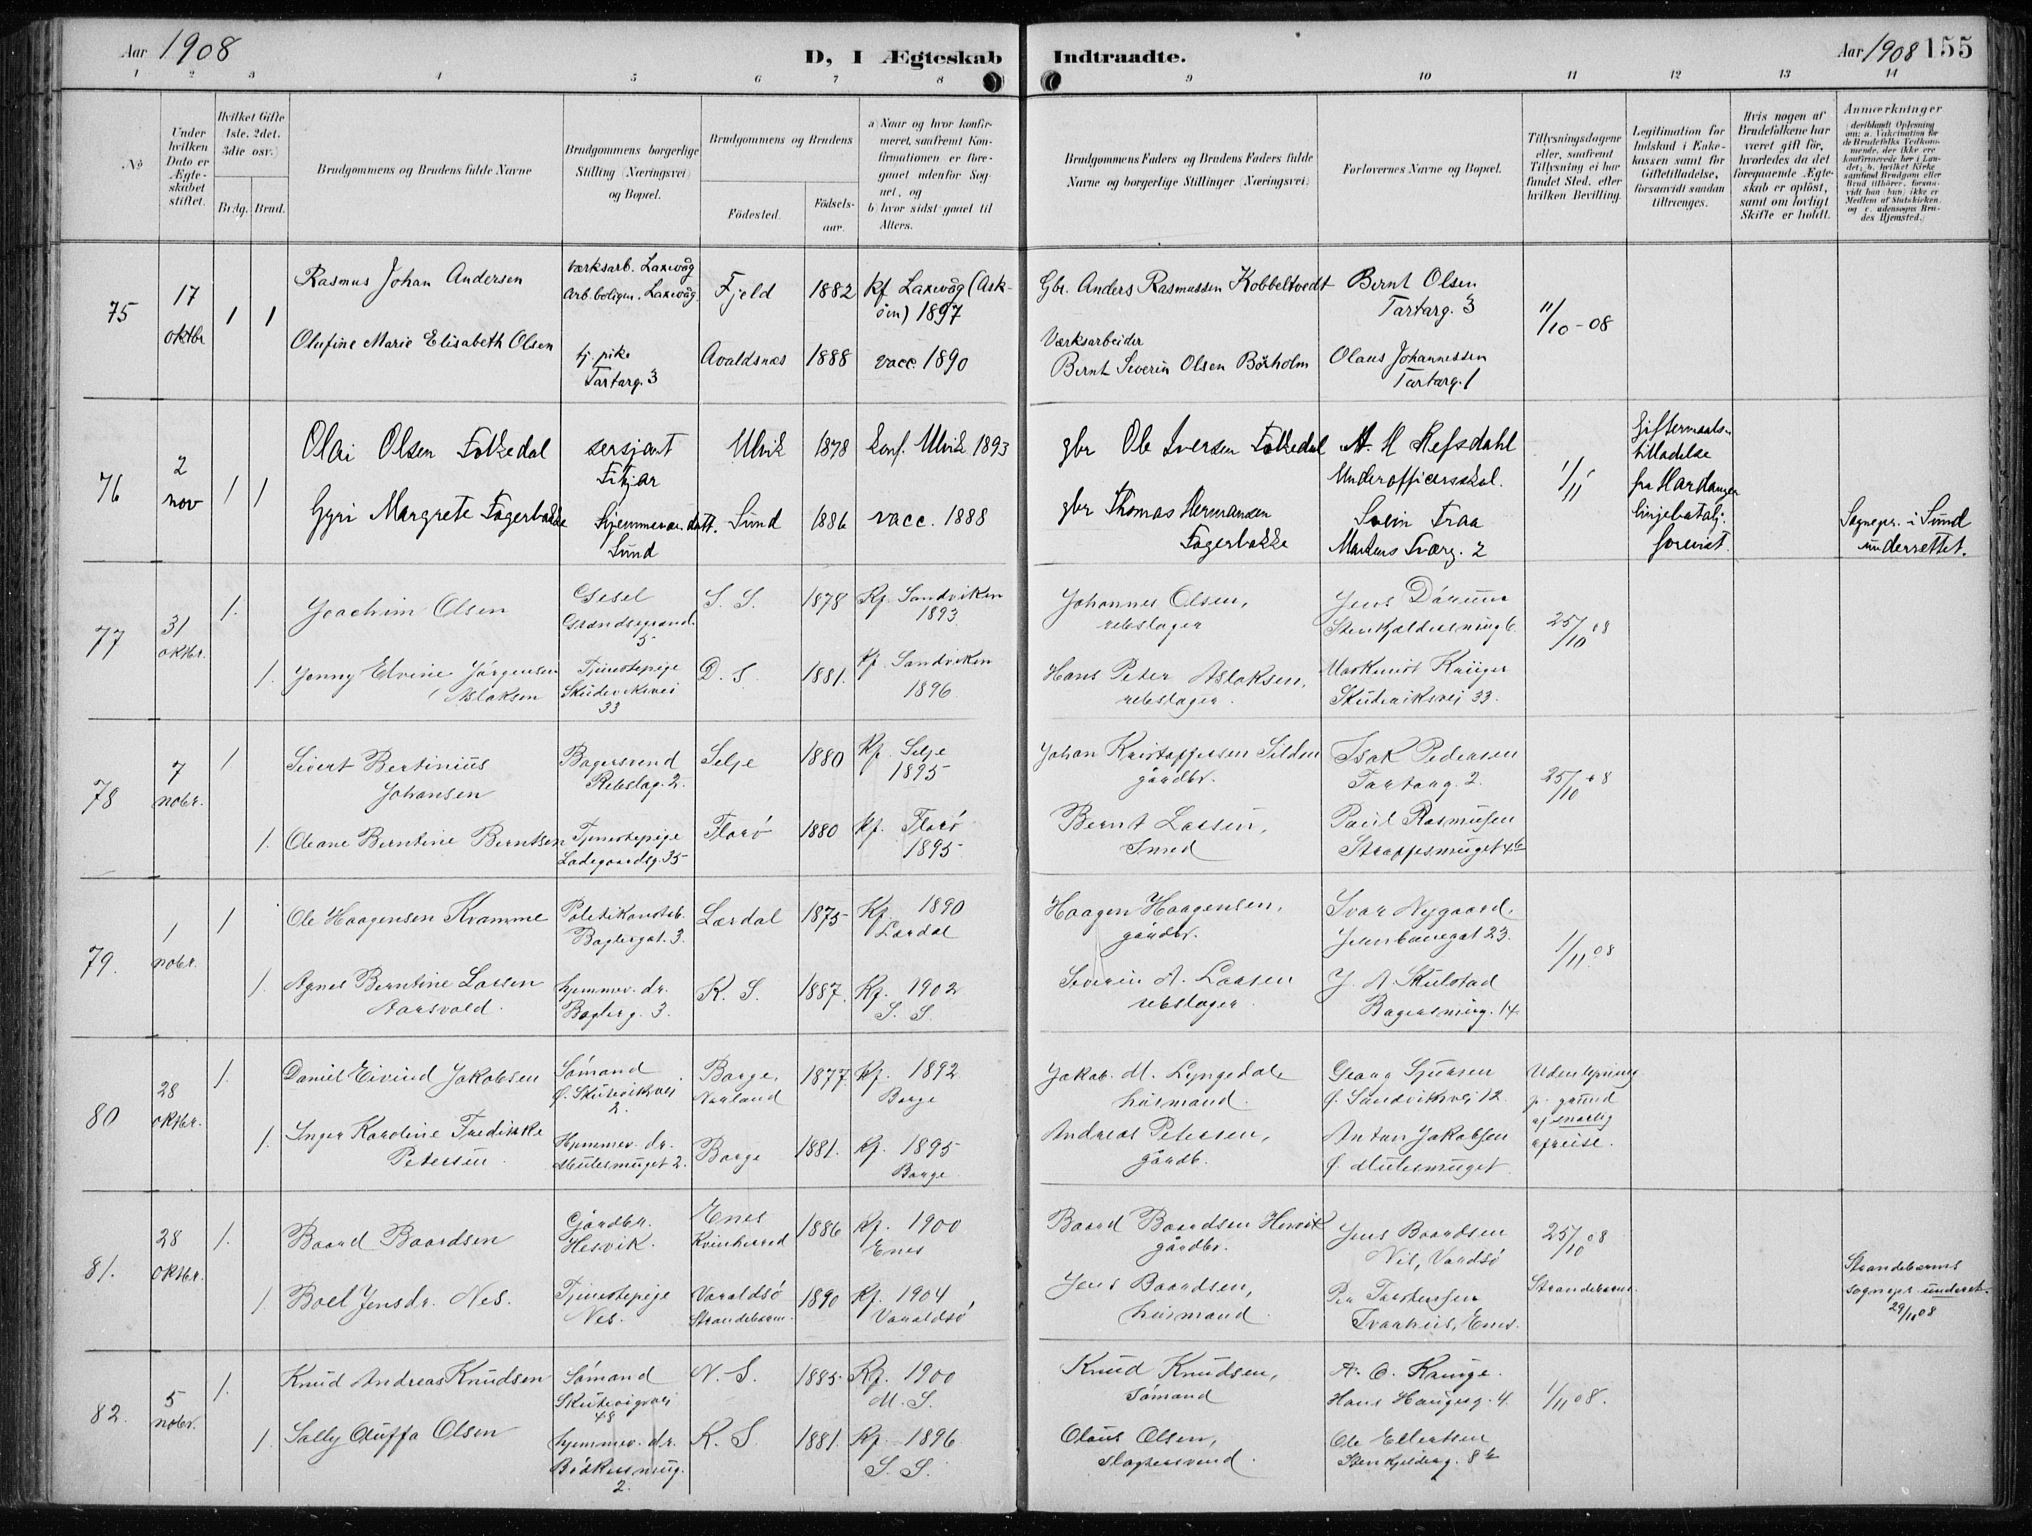 Aar 1908
D, I Ægteskab Indtraadte.
Aar 1908 155
1 2 3 4 5 6 7 8 9 10 11 12 13 14
No
Under hvilken Dato er Ægteskabet stiftet.
Hvilket Gifte 1ste. 2det. 3die osv.)
Brdg. Brud.
Brudgommens og Brudens fulde Navne
Brudgommens borgerlige Stilling (Næringsvei) og Bopæl.
Brudgommens og Brudens
Fødested.
Fødselsaar.
a) Naar og hvor konfirmeret, saafremt Konfirmationen er foregaaet udenfor Sognet, og
b) hvor sidst gaaet til Alters.
Brudgommens Faders og Brudens Faders fulde Navne og borgerlige Stillinger (Næringsvei)
Forlovernes Navne og Bopæl.
Tillysningsdagene eller, saafremt Tillysning ei har fundet Sted, efter hvilken Bevilling.
Legitimation for Indskud i Enkekassen samt for Giftetilladelse, forsaavidt saadan tiltrænges.
Hvis nogen af Brudefolkene har været gift før, hvorledes da det foregaaende Ægteskab er opløst, samt om lovligt Skifte er holdt.
Anmærkninger
75 17 oktbr 1 1
Rasmus Johan Andersen
Værksarb. Laxevåg
Arb.boligen. Laxevåg
Fjeld 1882 kf Laxevåg (Askøen) 1897
Gbr. Anders Rasmussen Kobbeltvedt
Bernt Olsen
Tartarg. 3
11/10-08
Olufine Marie Elisabeth Olsen
tj. pike
Tartarg. 3
Avaldsnæs 1888 vacc. 1890
Værksarbeider
Bernt Severin Olsen Børholm
Olaus Johannessen
Tartarg. 1
76 2 nov 1 1
Olai Olsen Folkedal
sersjant
Fitjar
Ulvik 1878 konf. Ulvik 1893
gbr Ole Iversen Folkedal
A. H Refsdahl
Underofficersskol.
1/11
Giftermaalstilladelse
fra Hardanger
linjebatalj.
forevist.
Gyri Margrete Fagerbakke
hjemmevær. datt.
Sund
Sund 1886 vacc. 1888
gbr Thomas Hermansen
Fagerbakke
Svein Traa
Markens Tværg. 2
Sognepr. i Sund
underrettet.
77 31 oktbr. 1.
Joachim Olsen
Gesel
5
S. S. 1878 Kf. Sandviken
1893
Johannes Olsen,
rebslager
Jens
25/10 08
1. Jenny Elvine Jørgensen
Aslaksen
Tjenestepige
Skudeviksvei
33
D. S 1881. Kf. Sandviken
1896
Hans Peter Aslaksen,
rebslager.
Skudeviksvej 33.
78 7 nobr. 1
Sivert Bertinius
Johansen
Bagersvend
Rebslag. 2.
Selje 1880 Kf. Selje
1895
Johan Kristoffersen Silden
gårdbr.
Isak Pedersen
Tartarg. 2.
25/10 08
1. Oleane Berntine Berntsen
Tjenestepige
Ladegaardsg. 35
Florø 1880 Kf. Florø
1895
Bernt Lassen,
Smed
Paul Rasmussen
79. 1 nobr. 1
Ole Haagensen Kvamme
Politikonstab.
Baglergat. 3.
Lærdal 1875 Kf. 1890
Lærdal
Haagen Haagensen,
gårdbr.
Ivar Nygaard,
Jernbanegat 23.
1/11 08
1. Agnes Berntine Larsen
Aarsvold.
hjemmev. dr.
Baglerg. 3.
K. S. 1887. Kf. 1902
S. S.
Severin A. Larsen
rebslager.
J. A. Skulstad
14
80 28 oktbr. 1.
Daniel Eivind Jakobsen
Sømand
Ø. Skuteviksvei
2.
Borge, Norland 1877 Kf. 1892
Borge
Jakob. M. Lyngedal
husmand.
Georg Sjursen
Ø. Sandviksvej 12.
Uden lysning
p. grund
af snarlig
afreise.
1. Inger Karoline Fredikke
Petersen.
Hjemmev. dr.
Mulesmuget 2.
Borge 1881. Kf. 1895
Borge
Andreas Petersen,
gårdb.
Anton Jakobsen
Ø. Mulesmuget.
81. 28 oktbr. 1.
Baard Baardsen
Gårdbr.
Hesvik.
Enes
Kvinherred 1886 Kf. 1900
Enes
Baard Baardsen Hesvik
gårdbr.
Jens Baardsen
25/10 08
1. Boel Jensdr. Nes.
Tjenestepige
Nes.
Varaldsø
Strandebarm. 1890 Kf. 1904
Varaldsø
Jens Baardsen,
husmand
Per Torstensen
Enes.
Strandebarm.
Strandebarms
sognepr. underet.
29/11 08
82. 5 nobr. 1.
Knud Andreas Knudsen
Sømand
Skutevigsvei
48
N. S. 1885 Kf. 1900
M. S.
Knud Knudsen,
Sømand
Hans Haugesg. 4.
1/11 08.
1. Sally Oluffa Olsen
hjemmev. dr.
Bødkersmug.
2.
K. S 1881. Kf. 1896
S. S.
Olaus Olsen,
slagtersvend.
Ole Ellertsen